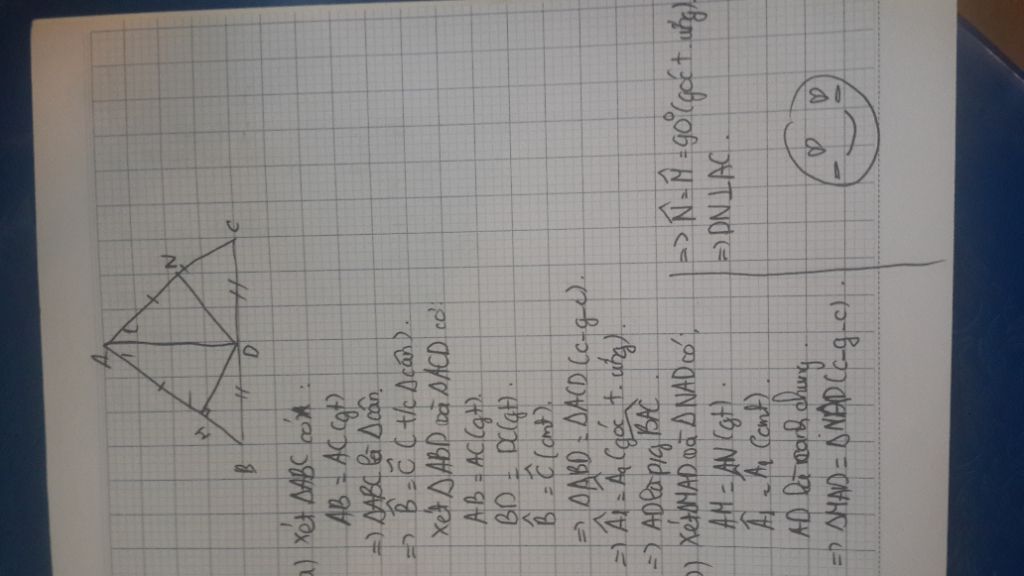 A
1 2
M
N
B
D
C
a) Xét ΔABC có:
AB = AC (gt)
=> ΔABC là Δ cân.
=> B̂ = Ĉ (t/c Δ cân).
Xét ΔABD và ΔACD có:
AB = AC (gt).
BD = DC (gt).
B̂ = Ĉ (cmt).
=> ΔABD = ΔACD (c-g-c).
=> Â1 = Â2 (góc t. ứng).
=> AD là p/g BAC.
b) Xét ΔMAD và ΔNAD có:
AM = AN (gt)
Â1 = Â2 (cmt).
AD là cạnh chung.
=> ΔMAD = ΔNAD (c-g-c).
=> N̂ = M̂ = 90° (góc t. ứng)
=> DN ⊥ AC.